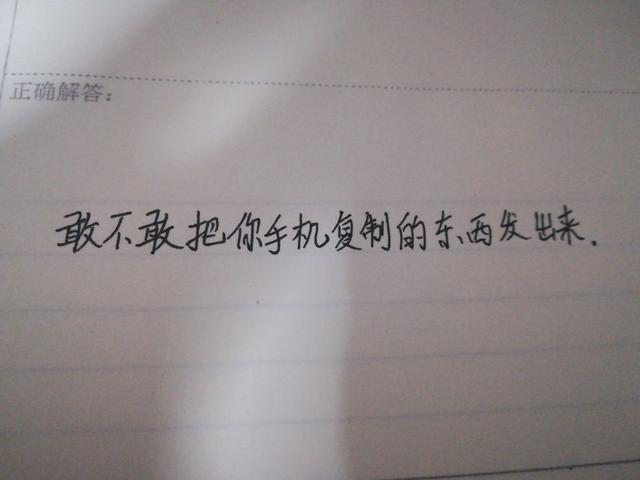 正确解答：
敢不敢把你手机复制的东西发出来.